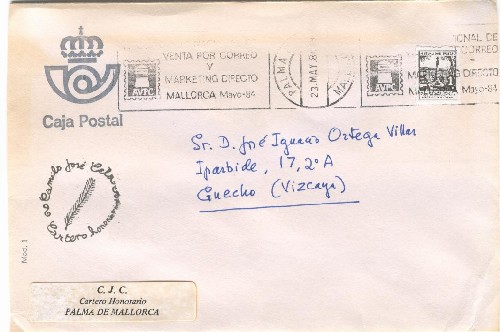 Caja Postal
VENTA POR CORREO
Y
MARKETING DIRECTO
MALLORCA Mayo-84
AVPC
PALMA
23.MAY.8
MA
AVPC
IONAL DE
CORREO
DIRECTO
Mayo-84
Sr. D. José Ignacio Ortega Villar
Iparbide, 17, 2º A
Guecho (Vizcaya)
Camilo José Cela
Cartero honorario
Mod. 1
C. J. C.
Cartero Honorario
PALMA DE MALLORCA